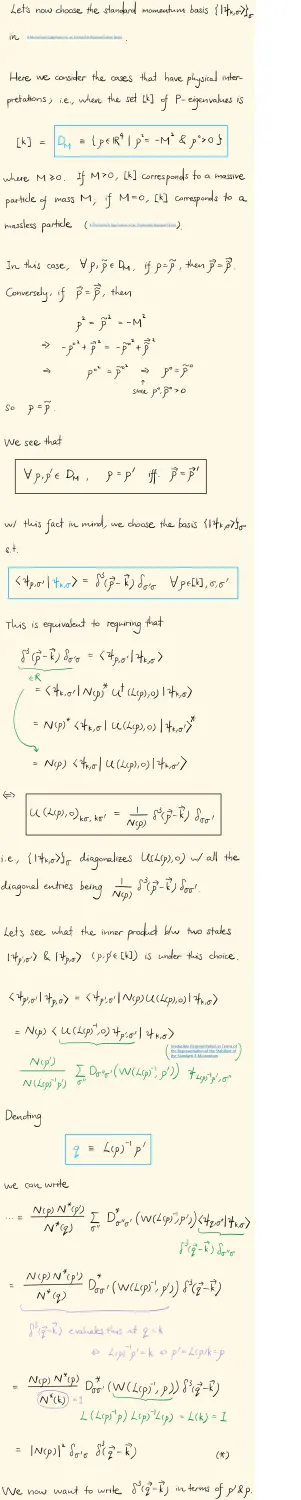 Let's now choose the standard momentum basis {|Ψk,σ⟩}σ
in .
Here we consider the cases that have physical inter-
pretations, i.e., where the set [k] of P-eigenvalues is
[k] = D_M ≡ { p∈ℝ⁴ | p² = -M² & p⁰>0 }
where M ≥ 0. If M>0, [k] corresponds to a massive
particle of mass M, if M=0, [k] corresponds to a
massless particle ( ).
In this case, ∀ p, p̃ ∈ D_M, if p = p̃, then p⃗ = p̃⃗.
Conversely, if p⃗ = p̃⃗, then
p² = p̃² = -M²
⇒ -p⁰² + p⃗² = -p̃⁰² + p̃⃗²
⇒ p⁰² = p̃⁰² ⇒ p⁰ = p̃⁰
↑
since p⁰, p̃⁰ > 0
so p = p̃.
We see that
∀ p, p' ∈ D_M, p = p' iff. p⃗ = p⃗'
w/ this fact in mind, we choose the basis {|Ψk,σ⟩}σ
s.t.
⟨Ψp,σ' | Ψk,σ⟩ = δ³(p⃗-k⃗) δσ'σ ∀ p∈[k], σ, σ'
This is equivalent to requiring that
δ³(p⃗-k⃗) δσ'σ = ⟨Ψp,σ' | Ψk,σ⟩
∈ℝ
= ⟨Ψk,σ' | N(p)* U†(L(p),0) | Ψk,σ⟩
= N(p)* ⟨Ψk,σ | U(L(p),0) | Ψk,σ'⟩*
= N(p) ⟨Ψk,σ | U(L(p),0) | Ψk,σ'⟩
⇔
U(L(p),0)kσ,kσ' = 1/N(p) δ³(p⃗-k⃗) δσσ'
i.e., {|Ψk,σ⟩}σ diagonalizes U(L(p),0) w/ all the
diagonal entries being 1/N(p) δ³(p⃗-k⃗) δσσ'.
Let's see what the inner product b/w two states
|Ψp',σ'⟩ & |Ψp,σ⟩ (p, p'∈[k]) is under this choice.
⟨Ψp',σ' | Ψp,σ⟩ = ⟨Ψp',σ' | N(p) U(L(p),0) | Ψk,σ⟩
= N(p) ⟨ U(L(p)⁻¹,0) Ψp',σ' | Ψk,σ⟩
(Irreducible Representation in Terms of
the Representation of the Stabilizer of
the Standard 4-Momentum)
N(p')/N(L(p)⁻¹p') Σσ'' Dσ''σ'(W(L(p)⁻¹,p')) ΨL(p)⁻¹p',σ''
Denoting
q ≡ L(p)⁻¹ p'
we can write
··· = N(p) N*(p')/N*(q) Σσ'' D*σ''σ'(W(L(p)⁻¹,p')) ⟨Ψq,σ''|Ψk,σ⟩
δ³(q⃗-k⃗) δσ''σ
= N(p) N*(p')/N*(q) D*σσ'(W(L(p)⁻¹,p')) δ³(q⃗-k⃗)
δ³(q⃗-k⃗) evaluates this at q = k
⇔ L(p)⁻¹p' = k ⇔ p' = L(p)k = p
= N(p) N*(p)/N*(k) D*σσ'(W(L(p)⁻¹,p)) δ³(q⃗-k⃗)
= 1
L(L(p)⁻¹p)⁻¹ L(p)⁻¹ L(p) = L(k) = 1
= |N(p)|² δσ'σ δ³(q⃗-k⃗) (*)
We now want to write δ³(q⃗-k⃗) in terms of p' & p.